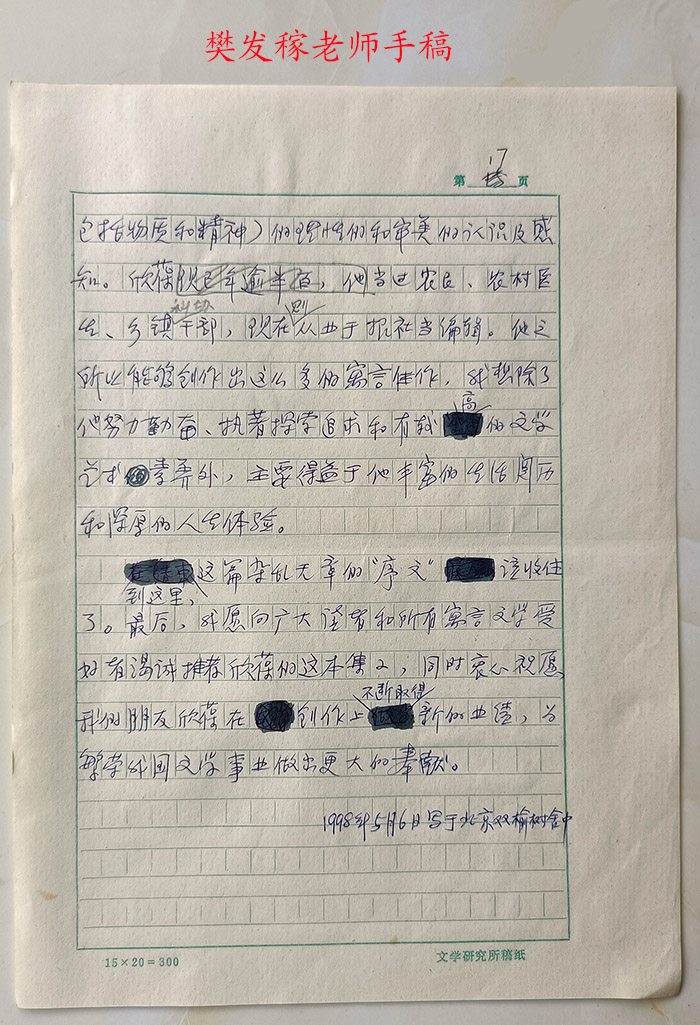 樊发稼老师手稿
第 17 页
包括物质和精神）的理性的和审美的认识及感
知。欣葆现已年逾半百，他当过农民、农村医
生、乡镇干部，现在则从业于报社当编辑。他之
所以能够创作出这么多的寓言佳作，我想除了
他努力勤奋、执著探索追求和有较高的文学
艺术素养外，主要得益于他丰富的生活阅历
和深厚的人生体验。
这篇杂乱无章的“序文”该收住
到这里，
了。最后，我愿向广大读者和所有寓言文学爱
好者竭诚推荐欣葆的这本集子；同时衷心祝愿
不断取得
我的朋友欣葆在创作上新的业绩，为
繁荣我国文学事业做出更大的奉献。
1998年5月6日写于北京双榆树舍中
15×20=300
文学研究所稿纸